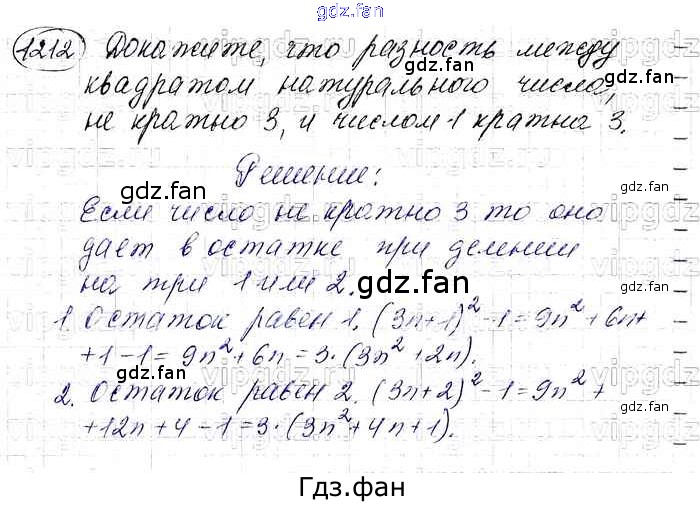 gdz.fan
1212 Докажите, что разность между
квадратом натурального числа,
не кратно 3, и числом 1 кратна 3.
gdz.fan
Решение:
gdz.fan
gdz.fan
Если число не кратно 3 то оно
дает в остатке при делении
на три 1 или 2. gdz.fan
1. Остаток равен 1. (3n+1)² -1 = 9n² + 6n +
gdz.fan
+1-1 = 9n² + 6n = 3·(3n² + 2n).
gdz.fan
2. Остаток равен 2. (3n+2)² -1 = 9n² +
gdz.fan
+12n + 4 - 1 = 3·(3n² + 4n + 1).
gdz.fan
Гдз.фан